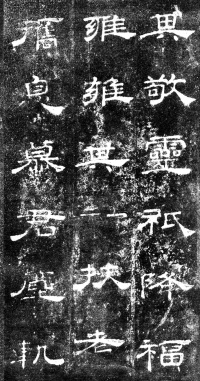 其敬靈祇降福
雍雍其二扶老
攜息慕君軌